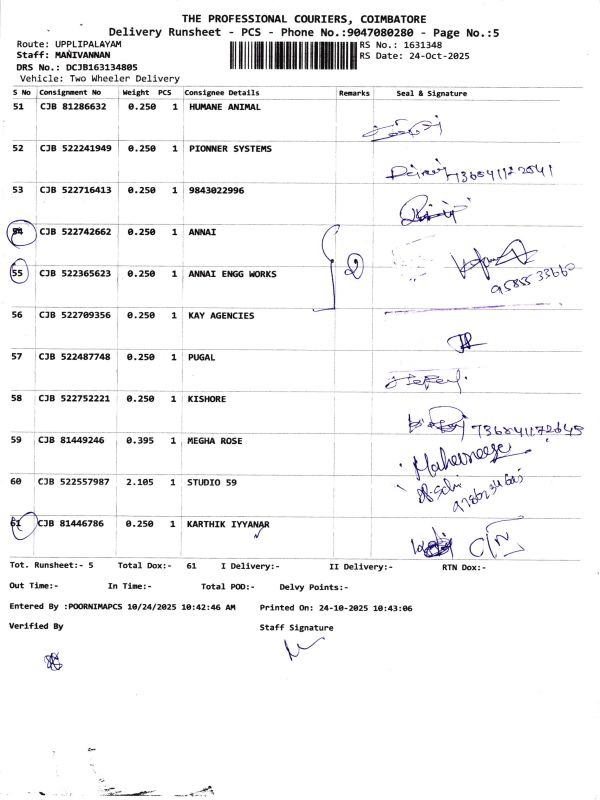 THE PROFESSIONAL COURIERS, COIMBATORE
Delivery Runsheet - PCS - Phone No.:9047080280 - Page No.:5
Route: UPPLIPALAYAM RS No.: 1631348
Staff: MANIVANNAN RS Date: 24-Oct-2025
DRS No.: DCJB163134805
Vehicle: Two Wheeler Delivery
S No Consignment No Weight PCS Consignee Details Remarks Seal & Signature
51 CJB 81286632 0.250 1 HUMANE ANIMAL
52 CJB 522241949 0.250 1 PIONNER SYSTEMS
53 CJB 522716413 0.250 1 9843022996
54 CJB 522742662 0.250 1 ANNAI
2
55 CJB 522365623 0.250 1 ANNAI ENGG WORKS
9585533660
56 CJB 522709356 0.250 1 KAY AGENCIES
57 CJB 522487748 0.250 1 PUGAL
58 CJB 522752221 0.250 1 KISHORE
59 CJB 81449246 0.395 1 MEGHA ROSE
60 CJB 522557987 2.105 1 STUDIO 59
61 CJB 81446786 0.250 1 KARTHIK IYYANAR
Tot. Runsheet:- 5 Total Dox:- 61 I Delivery:- II Delivery:- RTN Dox:-
Out Time:- In Time:- Total POD:- Delvy Points:-
Entered By :POORNIMAPCS 10/24/2025 10:42:46 AM Printed On: 24-10-2025 10:43:06
Verified By Staff Signature